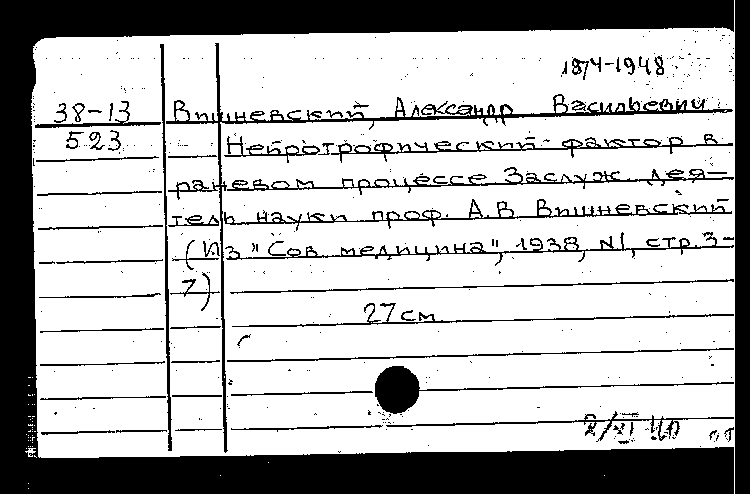 1874-1948
38-13 Вишневский, Александр Васильевич
523 Нейротрофический фактор в
раневом процессе Заслуж. дея-
тель науки проф. А.В Вишневский
(Из "Сов медицина", 1938, N1, стр. 3-
7)
27 см